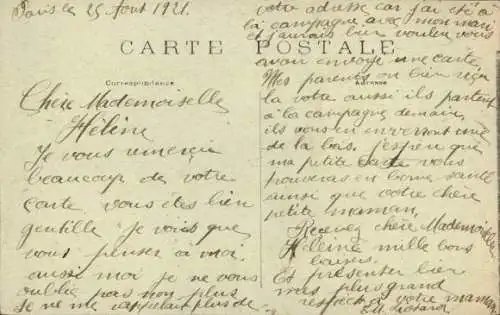 Paris le 25 Aout 1921.
CARTE POSTALE
Correspondance
Chère Mademoiselle
Hélène
Je vous remercie
beaucoup de votre
carte vous êtes bien
gentille je vois que
vous pensez à moi
aussi moi je ne vous
oublie pas non plus
Je ne me rappelait plus de
votre adresse car j'ai été à
la campagne avec mon mari
et j'aurais bien voulu vous
avoir envoyé une carte.
Adresse
Mes parents on bien reçu
la votre aussi ils partent
à la campagne demain,
ils vous en enverront une
de la bas. J'espère que
ma petite carte vous
trouveras en bonne santé
ainsi que votre chère
petite maman,
Recevez chère Mademoiselle
Hélène mille bons
baisers.
Et présenter bien
mes plus grand
respects à votre maman